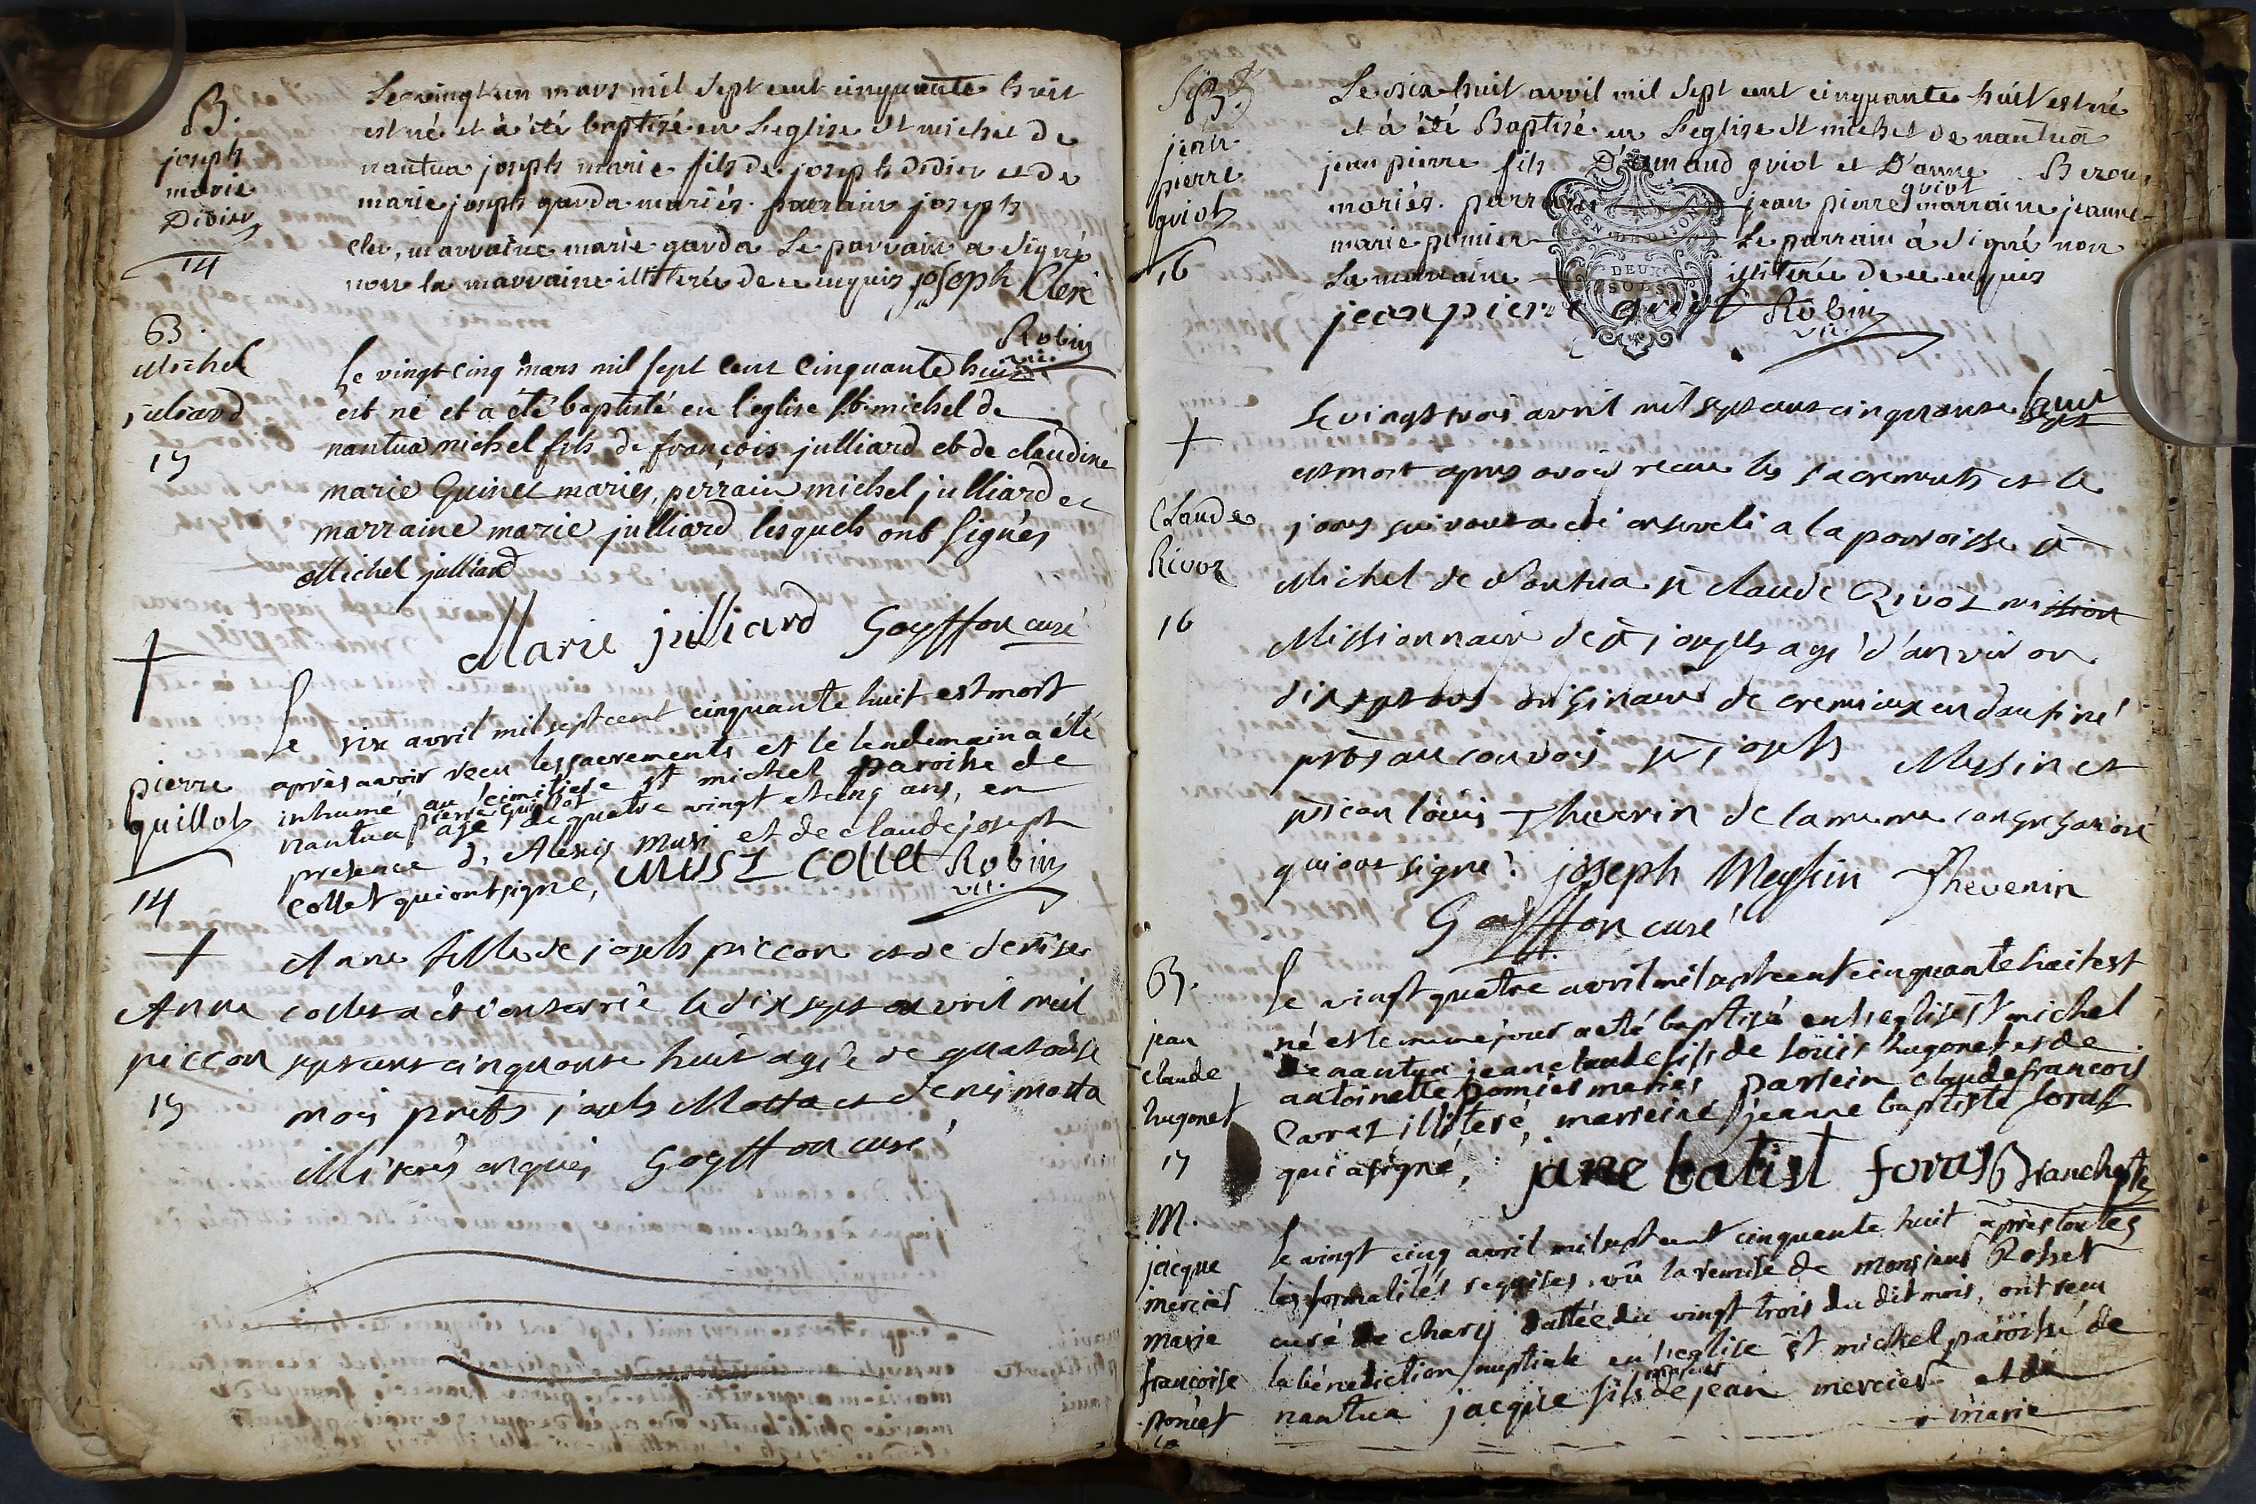 B.
joseph
marie
Didier
14
Le vingt un mars mil sept cent cinquante huit
est né et à été baptisé en L'eglise st michel de
nantua joseph marie fils de joseph didier et de
marie joseph garda mariés. parrain joseph
cler, marraine marie garda Le parrain a signé
non la marraine illiterée de ce enquis joseph Clerc
Robin
vic.
B.
Michel
juliard
15
le vingt cinq mars mil sept cent cinquante huit
est né et a été baptisté en l'eglise st. michel de
nantua michel fils de françois julliard et de claudine
marie Guinet mariés, perrain michel julliard et
marraine marie julliard lesquels ont signés
Michel julliard
Marie julliard Goyffon curé
pierre
quillot
14
Le six avril mil sept cent cinquante huit est mort
après avoir reçu les sacrements et le lendemain a été
inhumé au cimitiere st michel paroisse de
nantua pierre quillot
agé de quatre vingt et cinq ans, en
presence d'Alexis Musi et de claude joseph
collet qui ont signe, MUSI Collet Robin
vic.
Anne
piccon
15
Anne fille de joseph piccon et de denise
collet a été enterrée le dix sept avril mil
sept cent cinquante huit agée de quatorse
mois prnts joseph Motta et denis motta
illiterés enquis Goyffon curé
B.
jean
pierre
guiot
16
Le dix huit avril mil sept cent cinquante huit est né
et à été Baptisé en L'eglise st michel de nantua
jean pierre fils D'armand guiot et D'anne
mariés. parrain jean pierre guiot marraine jeanne
marie pomier Le parrain à signé non
La marraine illiterée de ce enquis
GEN DE DIJON
DEUX
SOLS
jean piere guiot Robin
vic.
Claude
Rivoz
16
Le vingt trois avril mil sept cent cinquante huit
est mort apres avoir receu les sacrements et le
jours suivant a été enseveli a la parroisse st
Michel de Nantua sr claude Rivoz mission
Missionnaire de st joseph agé d'anviron
dix sept ans originaire de cremieux en daufiné
prets au convois sr joseph Messin et
sr jean louis Thevenin de la meme congregation
qui ont signé. joseph Meyssin Thevenin
Goyffon curé
B.
jean
claude
hugonet
17
le vingt quatre avril mil sept cent cinquante huit est
né et le meme jour a eté baptisé en l'eglise st michel
de nantua jean claude fils de loüis hugonet et de
antoinette pomier mariés parrein claude françois
Carraz illiteré, marreine jeanne baptiste foras
qui a signé, jane batist foras Branche ptre
M.
jacque
mercier
marie
françoise
poncet
le vingt cinq avril mil sept cent cinquante huit après toutes
les formalités requises, vû la remise de monsieur Rosset
curé de charix dattée du vingt trois du dit mois, ont reçu
la bénédiction nuptiale en l'eglise st michel paroisse de
nantua jacque fils de jean mercier et de
marie